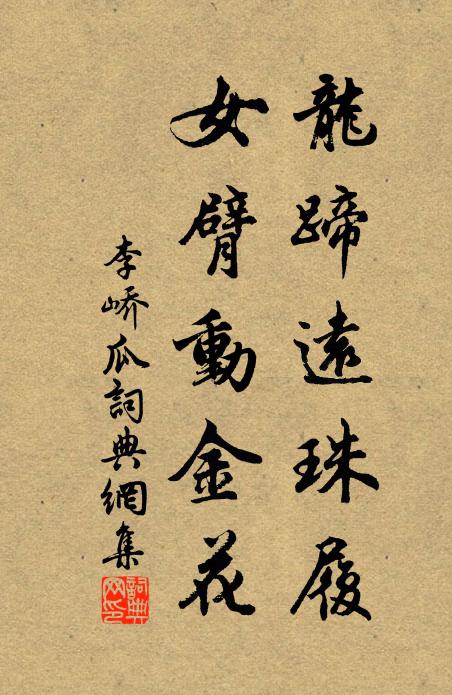 龍蹄遠珠履
女臂動金花
李嶠瓜詞典網集
詞典
网印